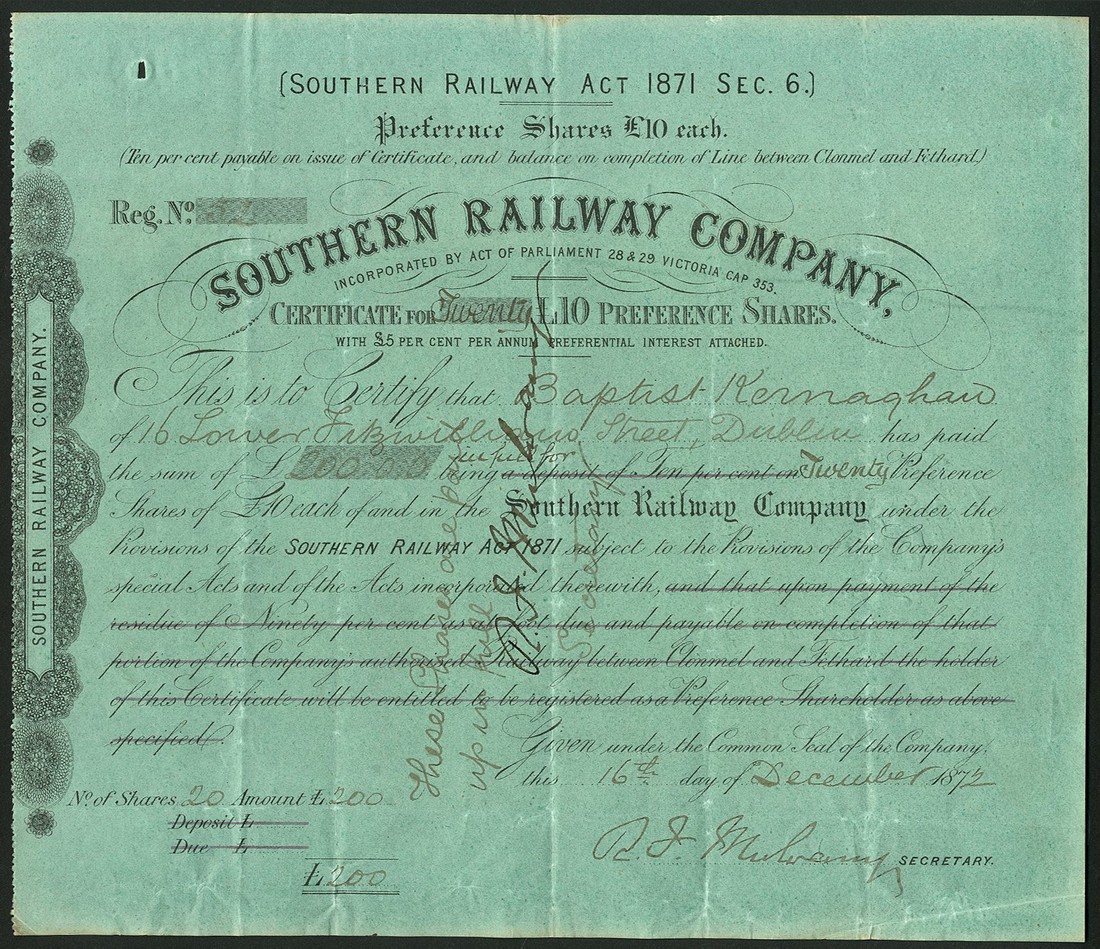 (SOUTHERN RAILWAY ACT 1871 SEC. 6.)
Preference Shares £10 each.
(Ten per cent payable on issue of Certificate, and balance on completion of Line between Clonmel and Fethard.)
Reg. No.
SOUTHERN RAILWAY COMPANY,
INCORPORATED BY ACT OF PARLIAMENT 28 & 29 VICTORIA CAP 353.
CERTIFICATE FOR Twenty £10 PREFERENCE SHARES.
WITH £5 PER CENT PER ANNUM PREFERENTIAL INTEREST ATTACHED.
This is to Certify that Baptist Kernaghan
of 16 Lower Fitzwilliams Street, Dublin has paid
in full for
the sum of £200.0.0 being a deposit of Ten per cent on Twenty Preference
Shares of £10 each of and in the Southern Railway Company under the
Provisions of the SOUTHERN RAILWAY ACT 1871 subject to the Provisions of the Company's
special Acts and of the Acts incorporated therewith, and that upon payment of the
residue of Ninety per cent as at last due and payable on completion of that
portion of the Company's authorized Railway between Clonmel and Fethard the holder
of this Certificate will be entitled to be registered as a Preference Shareholder as above
specified.
Given under the Common Seal of the Company,
this 16th day of December 1872
No. of Shares 20 Amount £200
Deposit £
Due £
£200
R. J. Mulvany SECRETARY.
These Shares are paid
up in full
R. J. Mulvany
Secretary
SOUTHERN RAILWAY COMPANY.